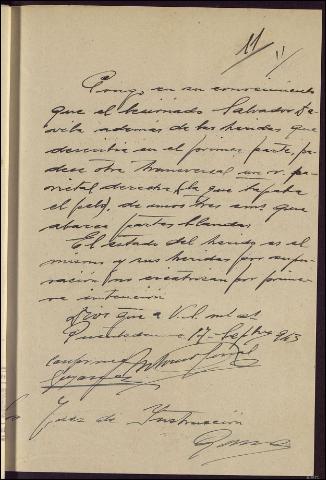 11
11
Pongo en su conocimiento
que el lesionado Salvador Da
vila además de las heridas que
describía en el primer parte, pa
dece otra transversal en r. pa
rietal derecha (la que tapaba
el pelo), de unos tres cms. que
abarca partes blandas
El estado del herido es el
mismo y sus heridas por supu
ración no cicatrizan por prime
ra intención
Dios que a V.S. m. a.
17 Septbre
Conforme Antonio
Juez de Instrucción